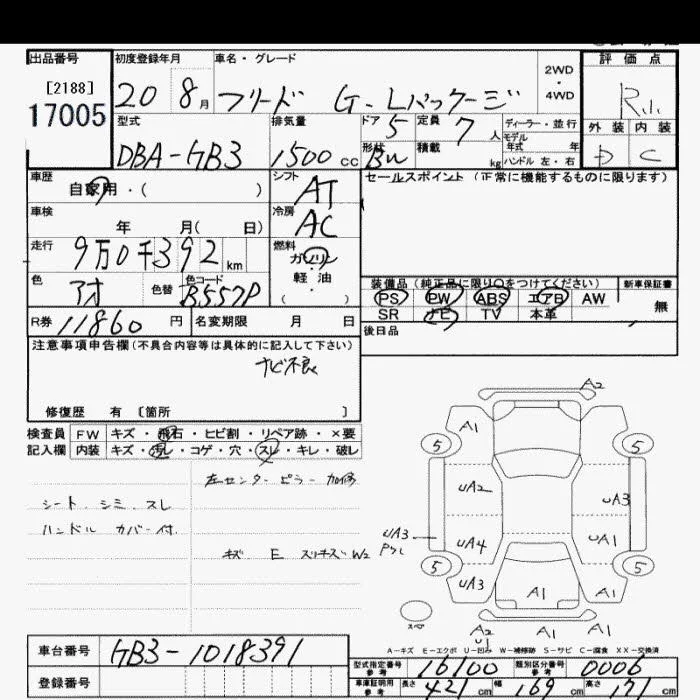 出品番号
[2188]
17005
初度登録年月
20 8月
車名・グレード
フリード G-Lパッケージ
2WD
・
4WD
評価点
R.1.
外装 内装
D C
型式
DBA-GB3
排気量
1500 cc
ドア 5
形状 Bu
定員 7人
積載 kg
ディーラー・並行
モデル年式 年
ハンドル 左・右
車歴
自家用・( )
シフト
AT
セールスポイント(正常に機能するものに限ります)
車検
年 月( 日)
冷房
AC
走行
9万0千392 km
燃料
ガソリン
軽油
( ・ )
色
アオ
色替
色コード
B557P
装備品(純正品に限り○をつけてください)
PS PW ABS エアB AW
SR ナビ TV 本革
新車保証書
無
R券 11860 円
名変期限 月 日
後日品
注意事項申告欄(不具合内容等は具体的に記入して下さい)
ナビ不良
修復歴 有 [箇所 ]
検査員記入欄
FW キズ・飛石・ヒビ割・リペア跡・×要
内装 キズ・汚レ・コゲ・穴・スレ・キレ・破レ
シート.シミ.スレ
ハンドル カバー付
左センターピラー加修
キズ E スリキズ W2
A2
A1
5 5
UA2 UA3
UA3
UA4 UA1
5 5
UA3 A1 A1
スペア
A2 A1 A1
U1
A-キズ E-エクボ U-凹み W-補修跡 S-サビ C-腐食 XX-交換済
車台番号
GB3-1018391
登録番号
型式指定番号
参考
16100
類別区分番号
参考
0006
車庫証明用
参考
長さ 421 cm 幅 169 cm 高さ 171 cm